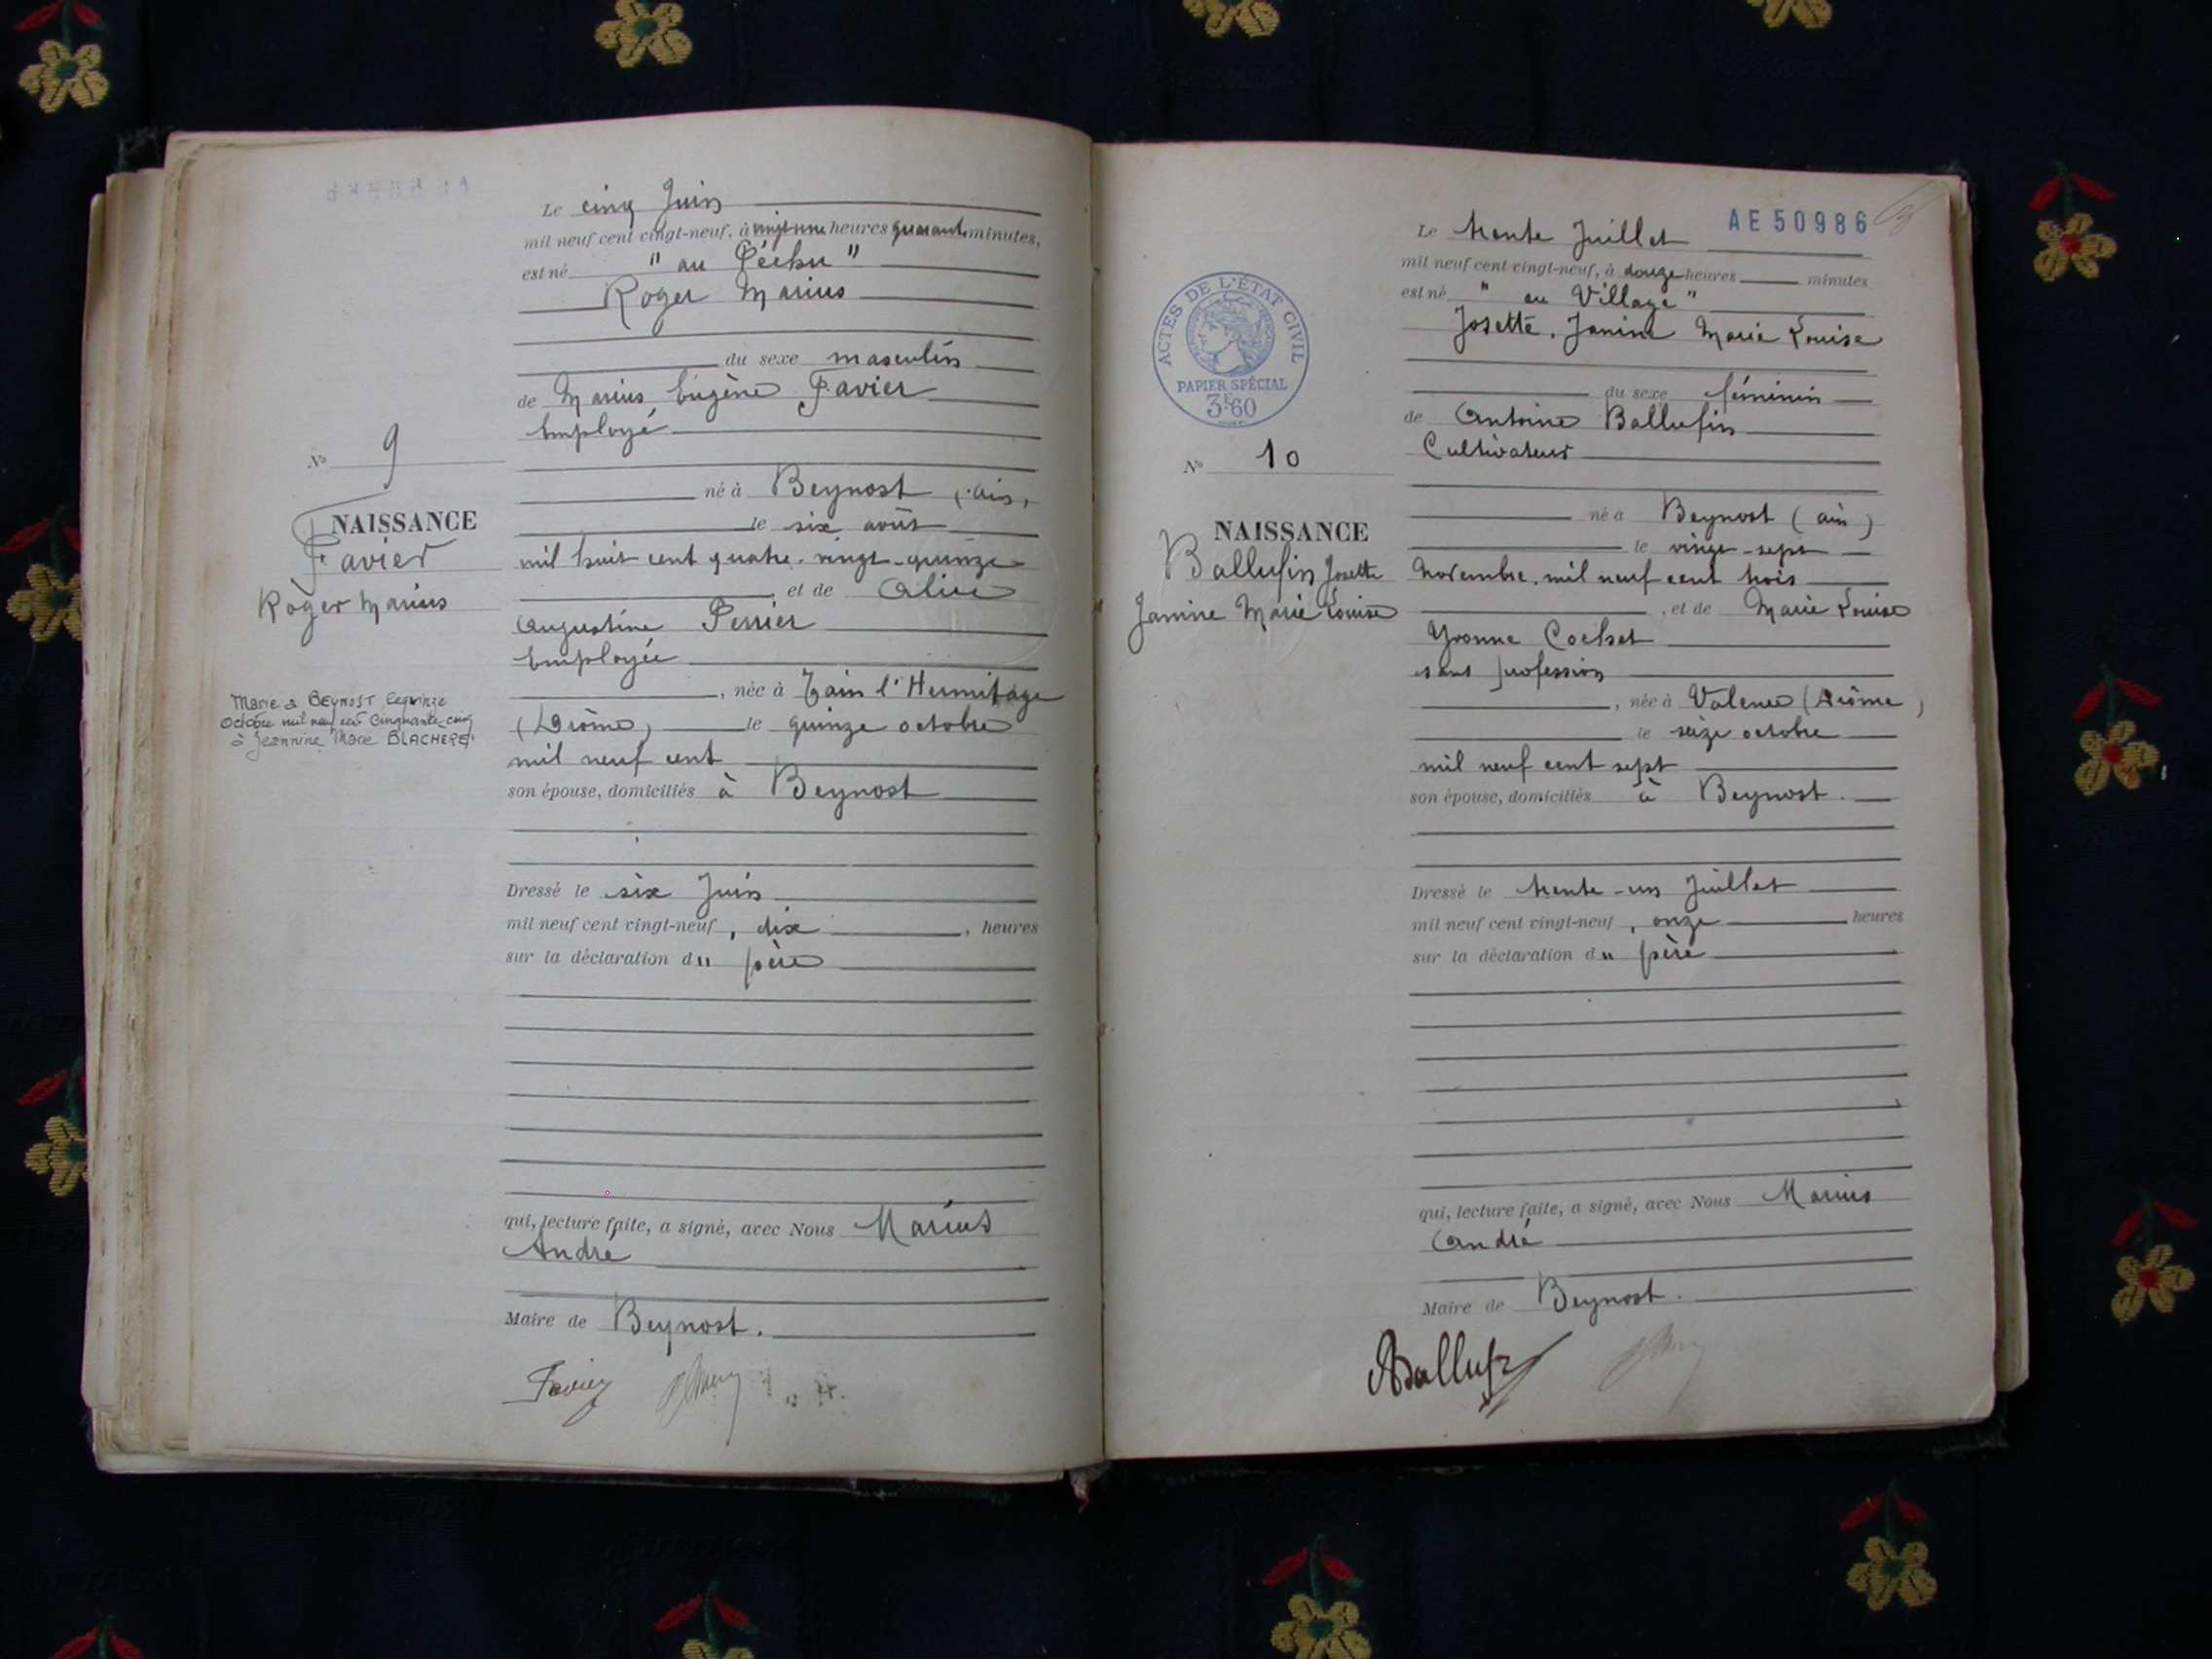 Le cinq Juin
mil neuf cent vingt-neuf, à vingt une heures quarante minutes,
est né " au Péchu "
Roger Marius
du sexe masculin
de Marius Eugène Favier
Employé
né à Beynost (Ain)
le six août
mil huit cent quatre-vingt-quinze
, et de Alice
Augustine Perrier
Employée
, née à Tain l'Hermitage
(Drôme) le quinze octobre
mil neuf cent
son épouse, domiciliés à Beynost
Dressé le six Juin
mil neuf cent vingt-neuf, dix , heures
sur la déclaration du père
qui, lecture faite, a signé, avec Nous Marius
André
Maire de Beynost.
Favier
No 9
NAISSANCE
Favier
Roger Marius
Marié à BEYNOST le quinze
Octobre mil neuf cent cinquante-cinq
à Jeannine Marie BLACHERE
AE 50986
Le trente Juillet
mil neuf cent vingt-neuf, à douze heures minutes
est né " au Village "
Josette, Janine Marie Louise
du sexe féminin
de Antoine Ballufin
Cultivateur
né à Beynost (Ain)
le vingt-sept
Novembre mil neuf cent trois
, et de Marie Louise
Yvonne Cochet
sans profession
, née à Valence (Drôme)
le seize octobre
mil neuf cent sept
son épouse, domiciliés à Beynost.
Dressé le trente-un Juillet
mil neuf cent vingt-neuf, onze heures
sur la déclaration du père
qui, lecture faite, a signé, avec Nous Marius
André
Maire de Beynost.
ABallufin
ACTES DE L'ÉTAT CIVIL
PAPIER SPÉCIAL
3F60
No 10
NAISSANCE
Ballufin Josette
Janine Marie Louise